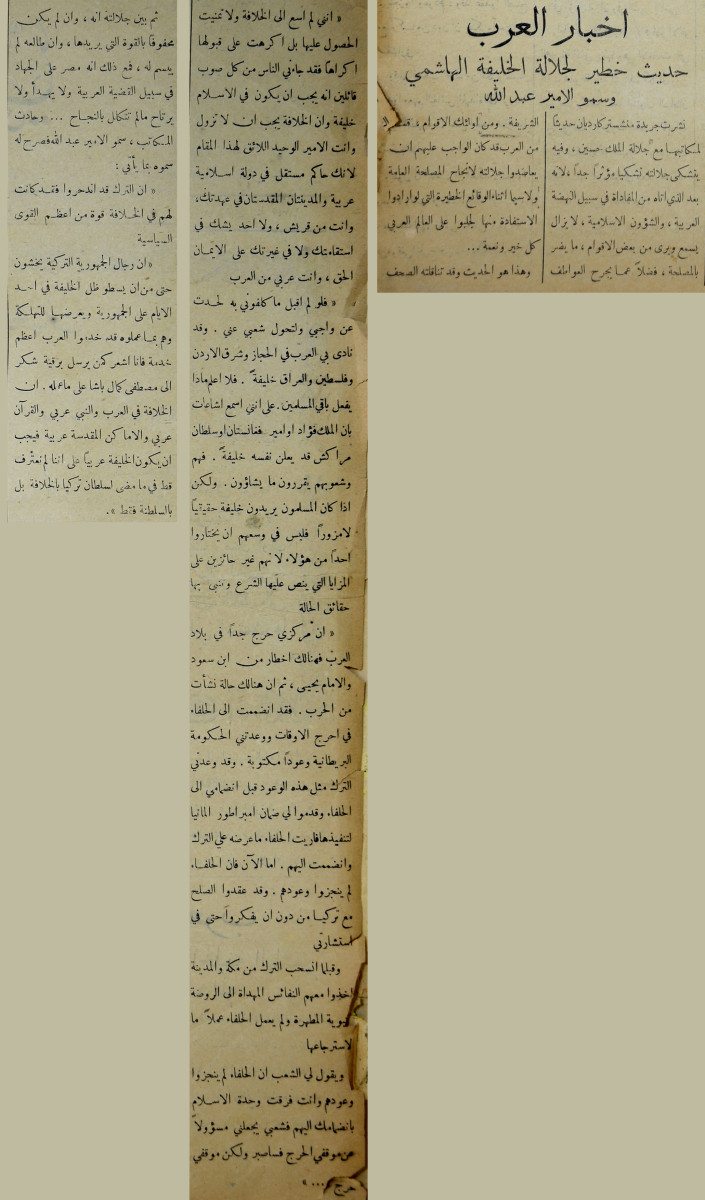 اخبار العرب
حديث خطير لجلالة الخليفة الهاشمي
وسمو الامير عبد الله
نشرت جريدة منشستر كارديان حديثاً
لمكاتبها مع جلالة الملك حسين ، وفيه
يتشكى جلالته تشكيا مؤثراً جداً ، لانه
بعد الذي اتاه من المفاداة في سبيل النهضة
العربية ، والشؤون الاسلامية ، لا يزال
يسمع ويرى من بعض الاقوام ، ما يضر
بالمصلحة ، فضلاً عما يجرح العواطف
الشريفة . ومن اولئك الاقوام ، قسم
من العرب قد كان الواجب عليهم ان
يعاضدوا جلالته لانجاح المصلحة العامة
ولاسيما اثناء الوقائع الخطيرة التي لو ارادوا
الاستفادة منها لجلبوا على العالم العربي
كل خير ونعمة ...
وهذا هو الحديث وقد تناقلته الصحف
« انني لم اسع الى الخلافة ولا تمنيت
الحصول عليها بل اكرهت على قبولها
اكراهاً فقد جاءني الناس من كل صوب
قائلين انه يجب ان يكون في الاسلام
خليفة وان الخلافة يجب ان لا تزول
وانت الامير الوحيد اللائق لهذا المقام
لانك حاكم مستقل في دولة اسلامية
عربية والمدينتان المقدستان في عهدتك ،
وانت من قريش ، ولا احد يشك في
استقامتك ولا في غيرتك على الايمان
الحق ، وانت عربي من العرب
« فلو لم اقبل ما كلفوني به لحدت
عن واجبي ولتحول شعبي عني . وقد
نادى بي العرب في الحجاز وشرق الاردن
وفلسطين والعراق خليفة . فلا اعلم ماذا
يفعل باقي المسلمين . على انني اسمع اشاعات
بان الملك فؤاد او امير فغانستان او سلطان
مراكش قد يعلن نفسه خليفة . فهم
وشعوبهم يقررون ما يشاؤون . ولكن
اذا كان المسلمون يريدون خليفة حقيقياً
لا مزوراً فليس في وسعهم ان يختاروا
احداً من هؤلاء لانهم غير حائزين على
المزايا التي ينص عليها الشرع وتنبى بها
حقائق الحالة
« ان مركزي حرج جداً في بلاد
العرب فهنالك اخطار من ابن سعود
والامام يحيى ، ثم ان هنالك حالة نشأت
من الحرب . فقد انضممت الى الحلفاء
في احرج الاوقات ووعدتني الحكومة
البريطانية وعوداً مكتوبة . وقد وعدني
الترك مثل هذه الوعود قبل انضمامي الى
الحلفاء وقدموا لي ضمان امبراطور المانيا
لتنفيذها فاريت الحلفاء ما عرضه علي الترك
وانضممت اليهم . اما الآن فان الحلفاء
لم ينجزوا وعودهم . وقد عقدوا الصلح
مع تركيا من دون ان يفكروا حتى في
استشارتي
وقبلما انسحب الترك من مكة والمدينة
اخذوا معهم النفائس المهداة الى الروضة
المطهرة ولم يعمل الحلفاء عملاً ما
لاسترجاعها
ويقول لي الشعب ان الحلفاء لم ينجزوا
وعودهم وانت فرقت وحدة الاسلام
بانضمامك اليهم فشعبي يجعلني مسؤولاً
عن موقفي الحرج فساصبر ولكن موقفي
حرج ... »
ثم بين جلالته انه ، وان لم يكن
محفوفاً بالقوة التي يريدها ، وان طالعه لم
يبسم له ، فمع ذلك انه مصر على الجهاد
في سبيل القضية العربية ولا يهدأ ولا
يرتاح مالم تتكلل بالنجاح ... وحادث
المكاتب ، سمو الامير عبد الله فصرح له
سموه بما يأتي :
« ان الترك قد اندحروا فقد كانت
لهم في الخلافة قوة من اعظم القوى
السياسية
« ان رجال الجمهورية التركية يخشون
حتى من ان يسطو ظل الخليفة في احد
الايام على الجمهورية ويعرضها للتهلكة
وهم بما عملوه قد خدموا العرب اعظم
خدمة فانا اشعر كمن يرسل برقية شكر
الى مصطفى كمال باشا على ما عمله . ان
الخلافة في العرب والنبي عربي والقرآن
عربي والاماكن المقدسة عربية فيجب
ان يكون الخليفة عربياً على اننا لم نعترف
قط في ما مضى لسلطان تركيا بالخلافة بل
بالسلطنة فقط » .